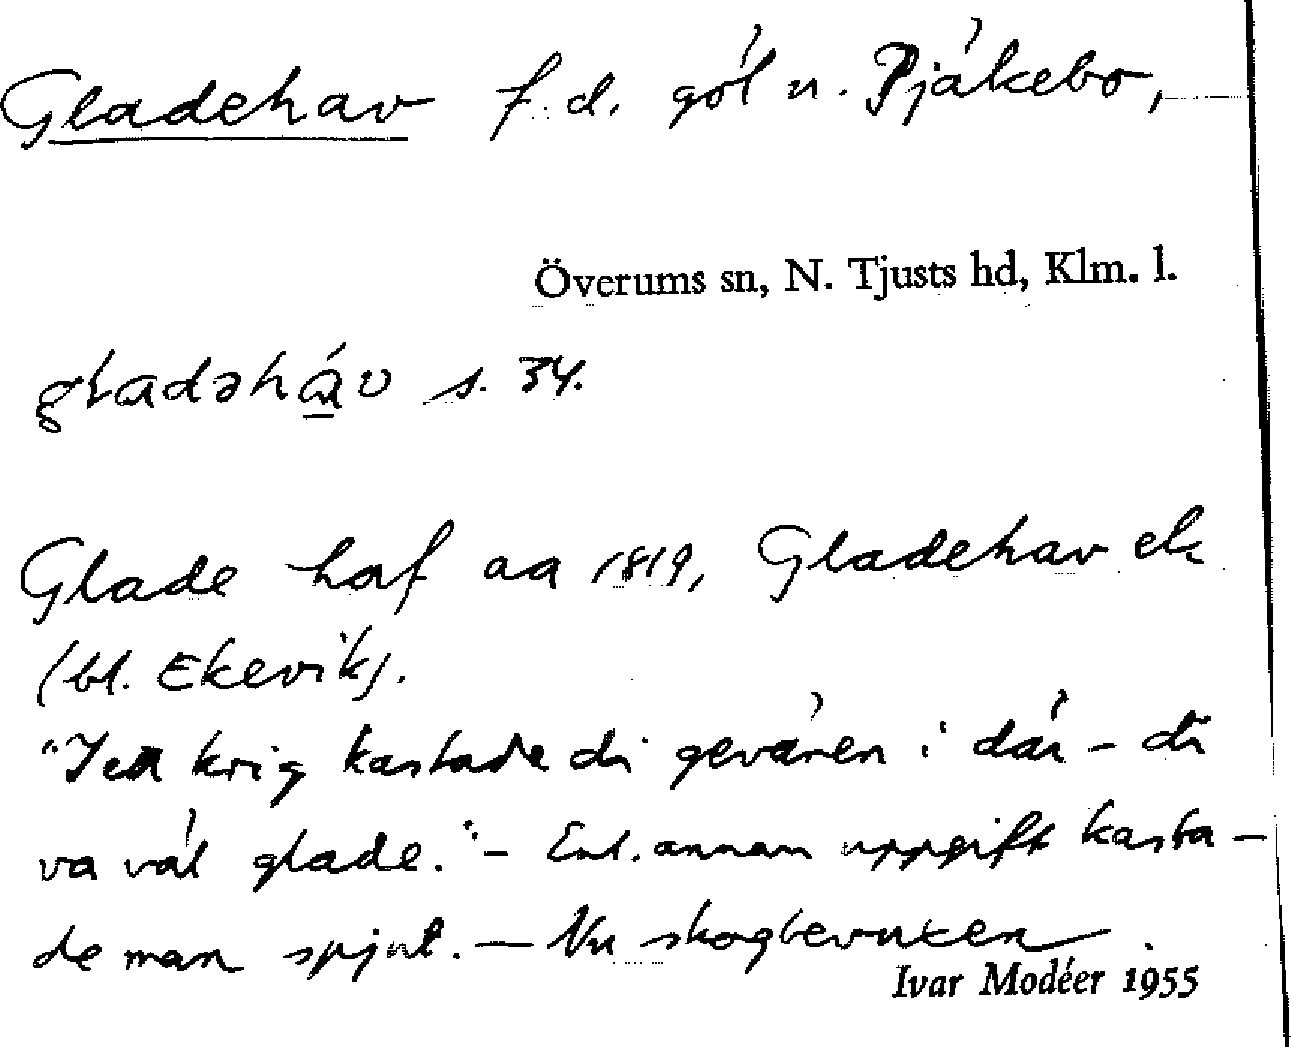 Gladehav f.d. göl n. Pjäkebo,
Överums sn, N. Tjusts hd, Klm. l.
gladəhɑ́v s. 34.
Glade haf aa 1819, Gladehav ek
(bl. Ekevik).
"I ett krig kastade di gevären i där – di
va väl glade." – Enl. annan uppgift kasta-
de man spjut. — Nu skogbevuxen.
Ivar Modéer 1955